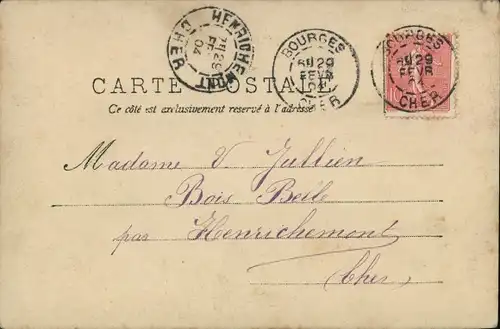 HENRICHEMONT
29
FEVR
04
CHER
BOURGES
29
FEVR
04
CHER
BOURGES
29
FEVR
04
CHER
CARTE POSTALE
Ce côté est exclusivement reservé à l'adresse
Madame V. Jullien
Bois Belle
par Henrichemont
Cher